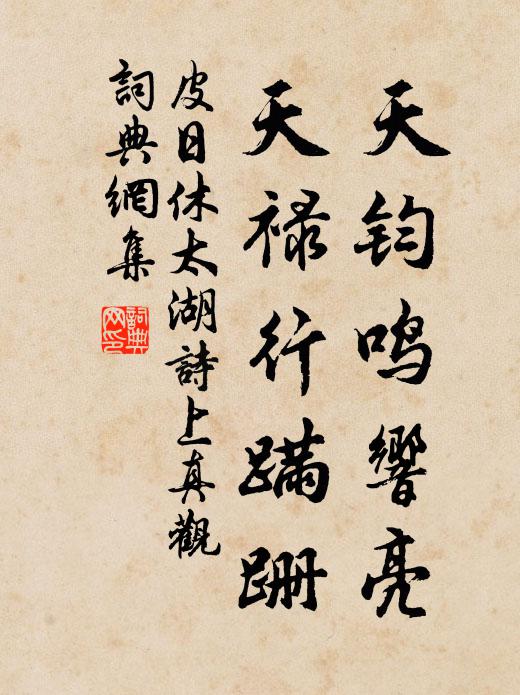 天钧鸣響亮
天禄行蹒跚
皮日休太湖詩上真觀
詞典網集
詞典网印